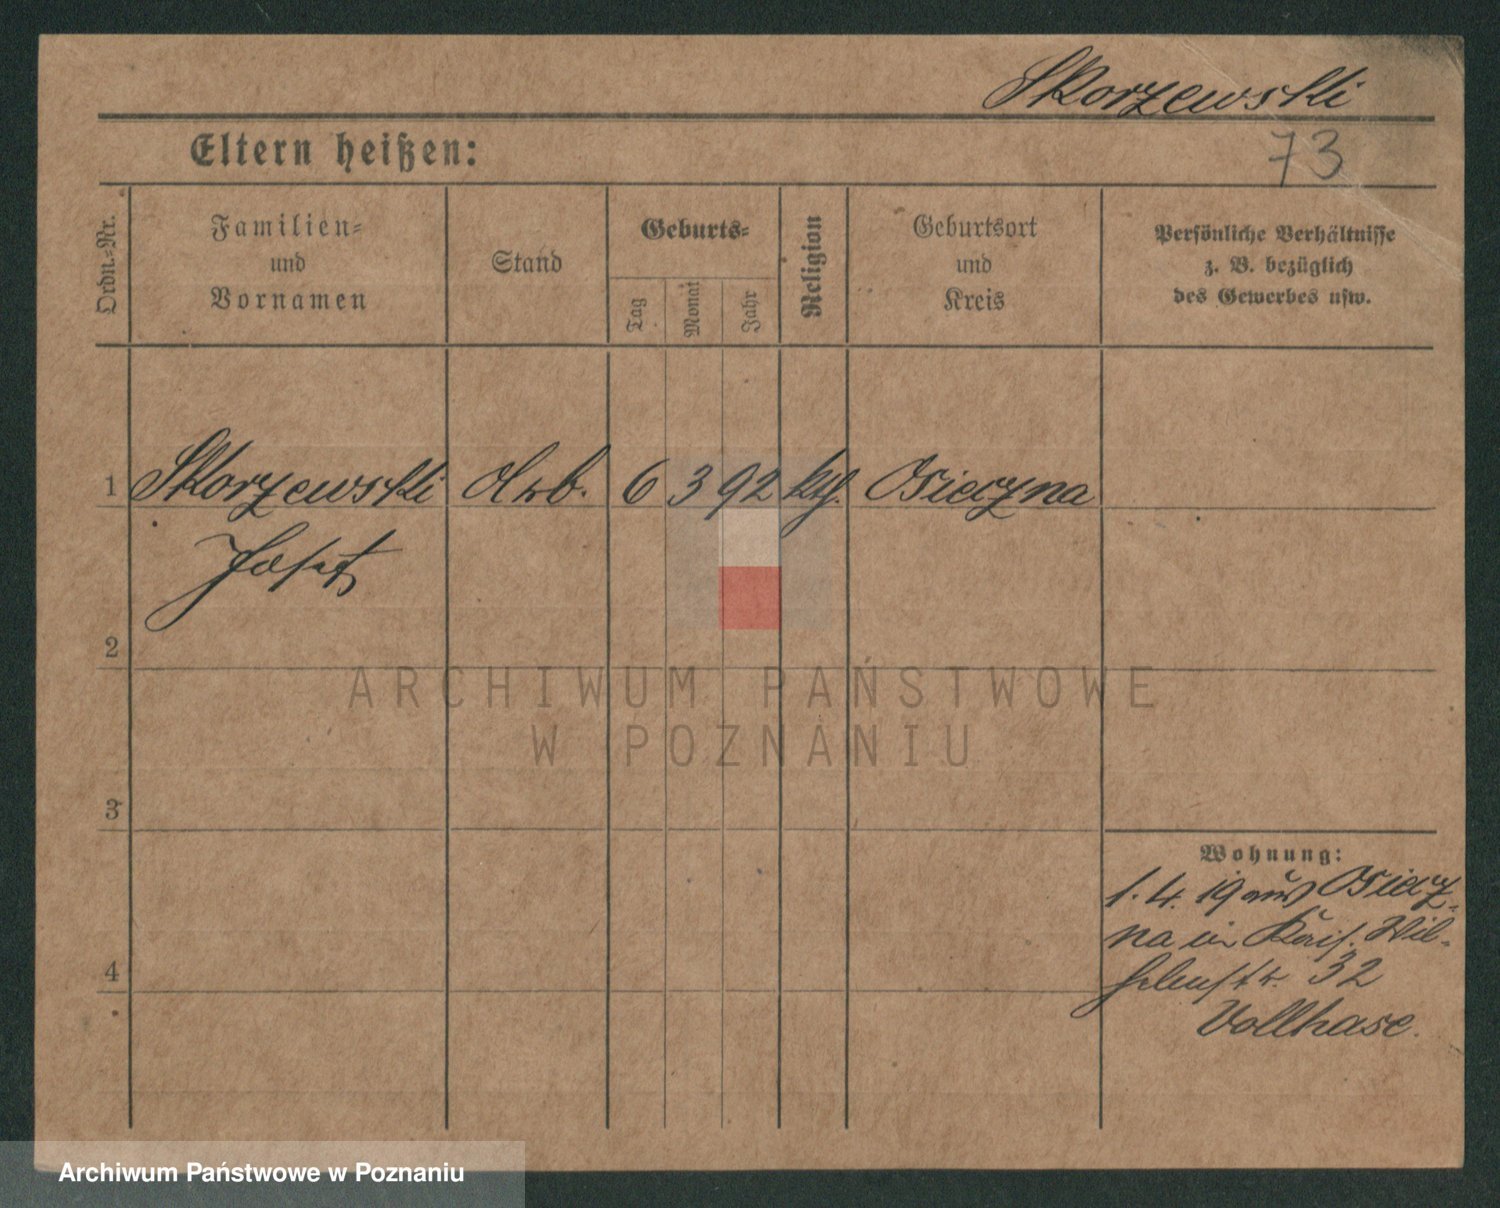 Skorzewski
Eltern heißen:
73
Ordn.-Nr.
Familien-
und
Vornamen
Stand
Geburts-
Tag
Monat
Jahr
Religion
Geburtsort
und
Kreis
Persönliche Verhältnisse
z. B. bezüglich
des Gewerbes usw.
1 Skorzewski Arb. 6 3 92 kth. Osieczna
Josef
2
3
4
Wohnung:
1. 4. 19 aus Osiecz-
na in Kais. Wil-
helmstr. 32
Vollhase.
ARCHIWUM PAŃSTWOWE
W POZNANIU
Archiwum Państwowe w Poznaniu